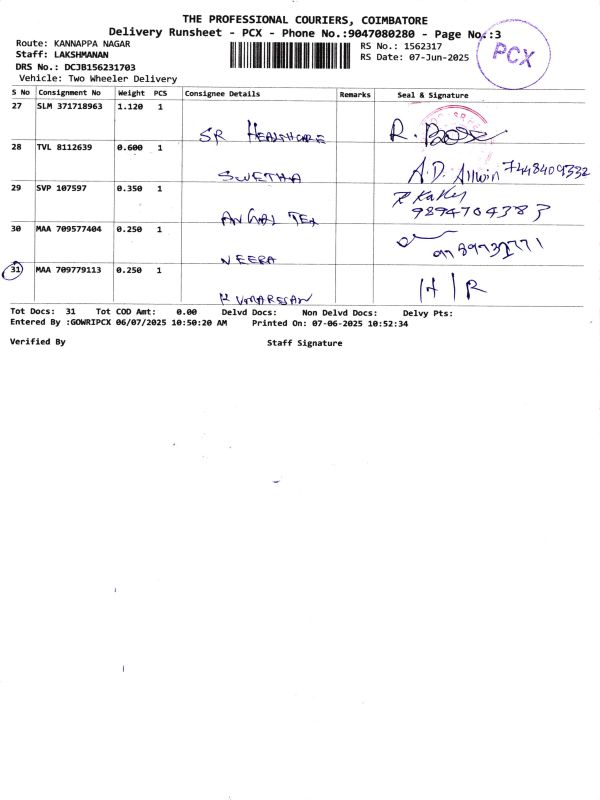 THE PROFESSIONAL COURIERS, COIMBATORE
Delivery Runsheet - PCX - Phone No.:9047080280 - Page No.:3
Route: KANNAPPA NAGAR
Staff: LAKSHMANAN
DRS No.: DCJB156231703
Vehicle: Two Wheeler Delivery
RS No.: 1562317
RS Date: 07-Jun-2025
PCX
S No Consignment No Weight PCS Consignee Details Remarks Seal & Signature
27 SLM 371718963 1.120 1 SR HEALTHCARE R. Bose
28 TVL 8112639 0.600 1 SWETHA A.D. Allwin 7448409332
29 SVP 107597 0.350 1 ANGAL TEX 9894704383
30 MAA 709577404 0.250 1 NEERA
31 MAA 709779113 0.250 1 KUMARESAN H/R
Tot Docs: 31 Tot COD Amt: 0.00 Delvd Docs: Non Delvd Docs: Delvy Pts:
Entered By :GOWRIPCX 06/07/2025 10:50:20 AM Printed On: 07-06-2025 10:52:34
Verified By Staff Signature